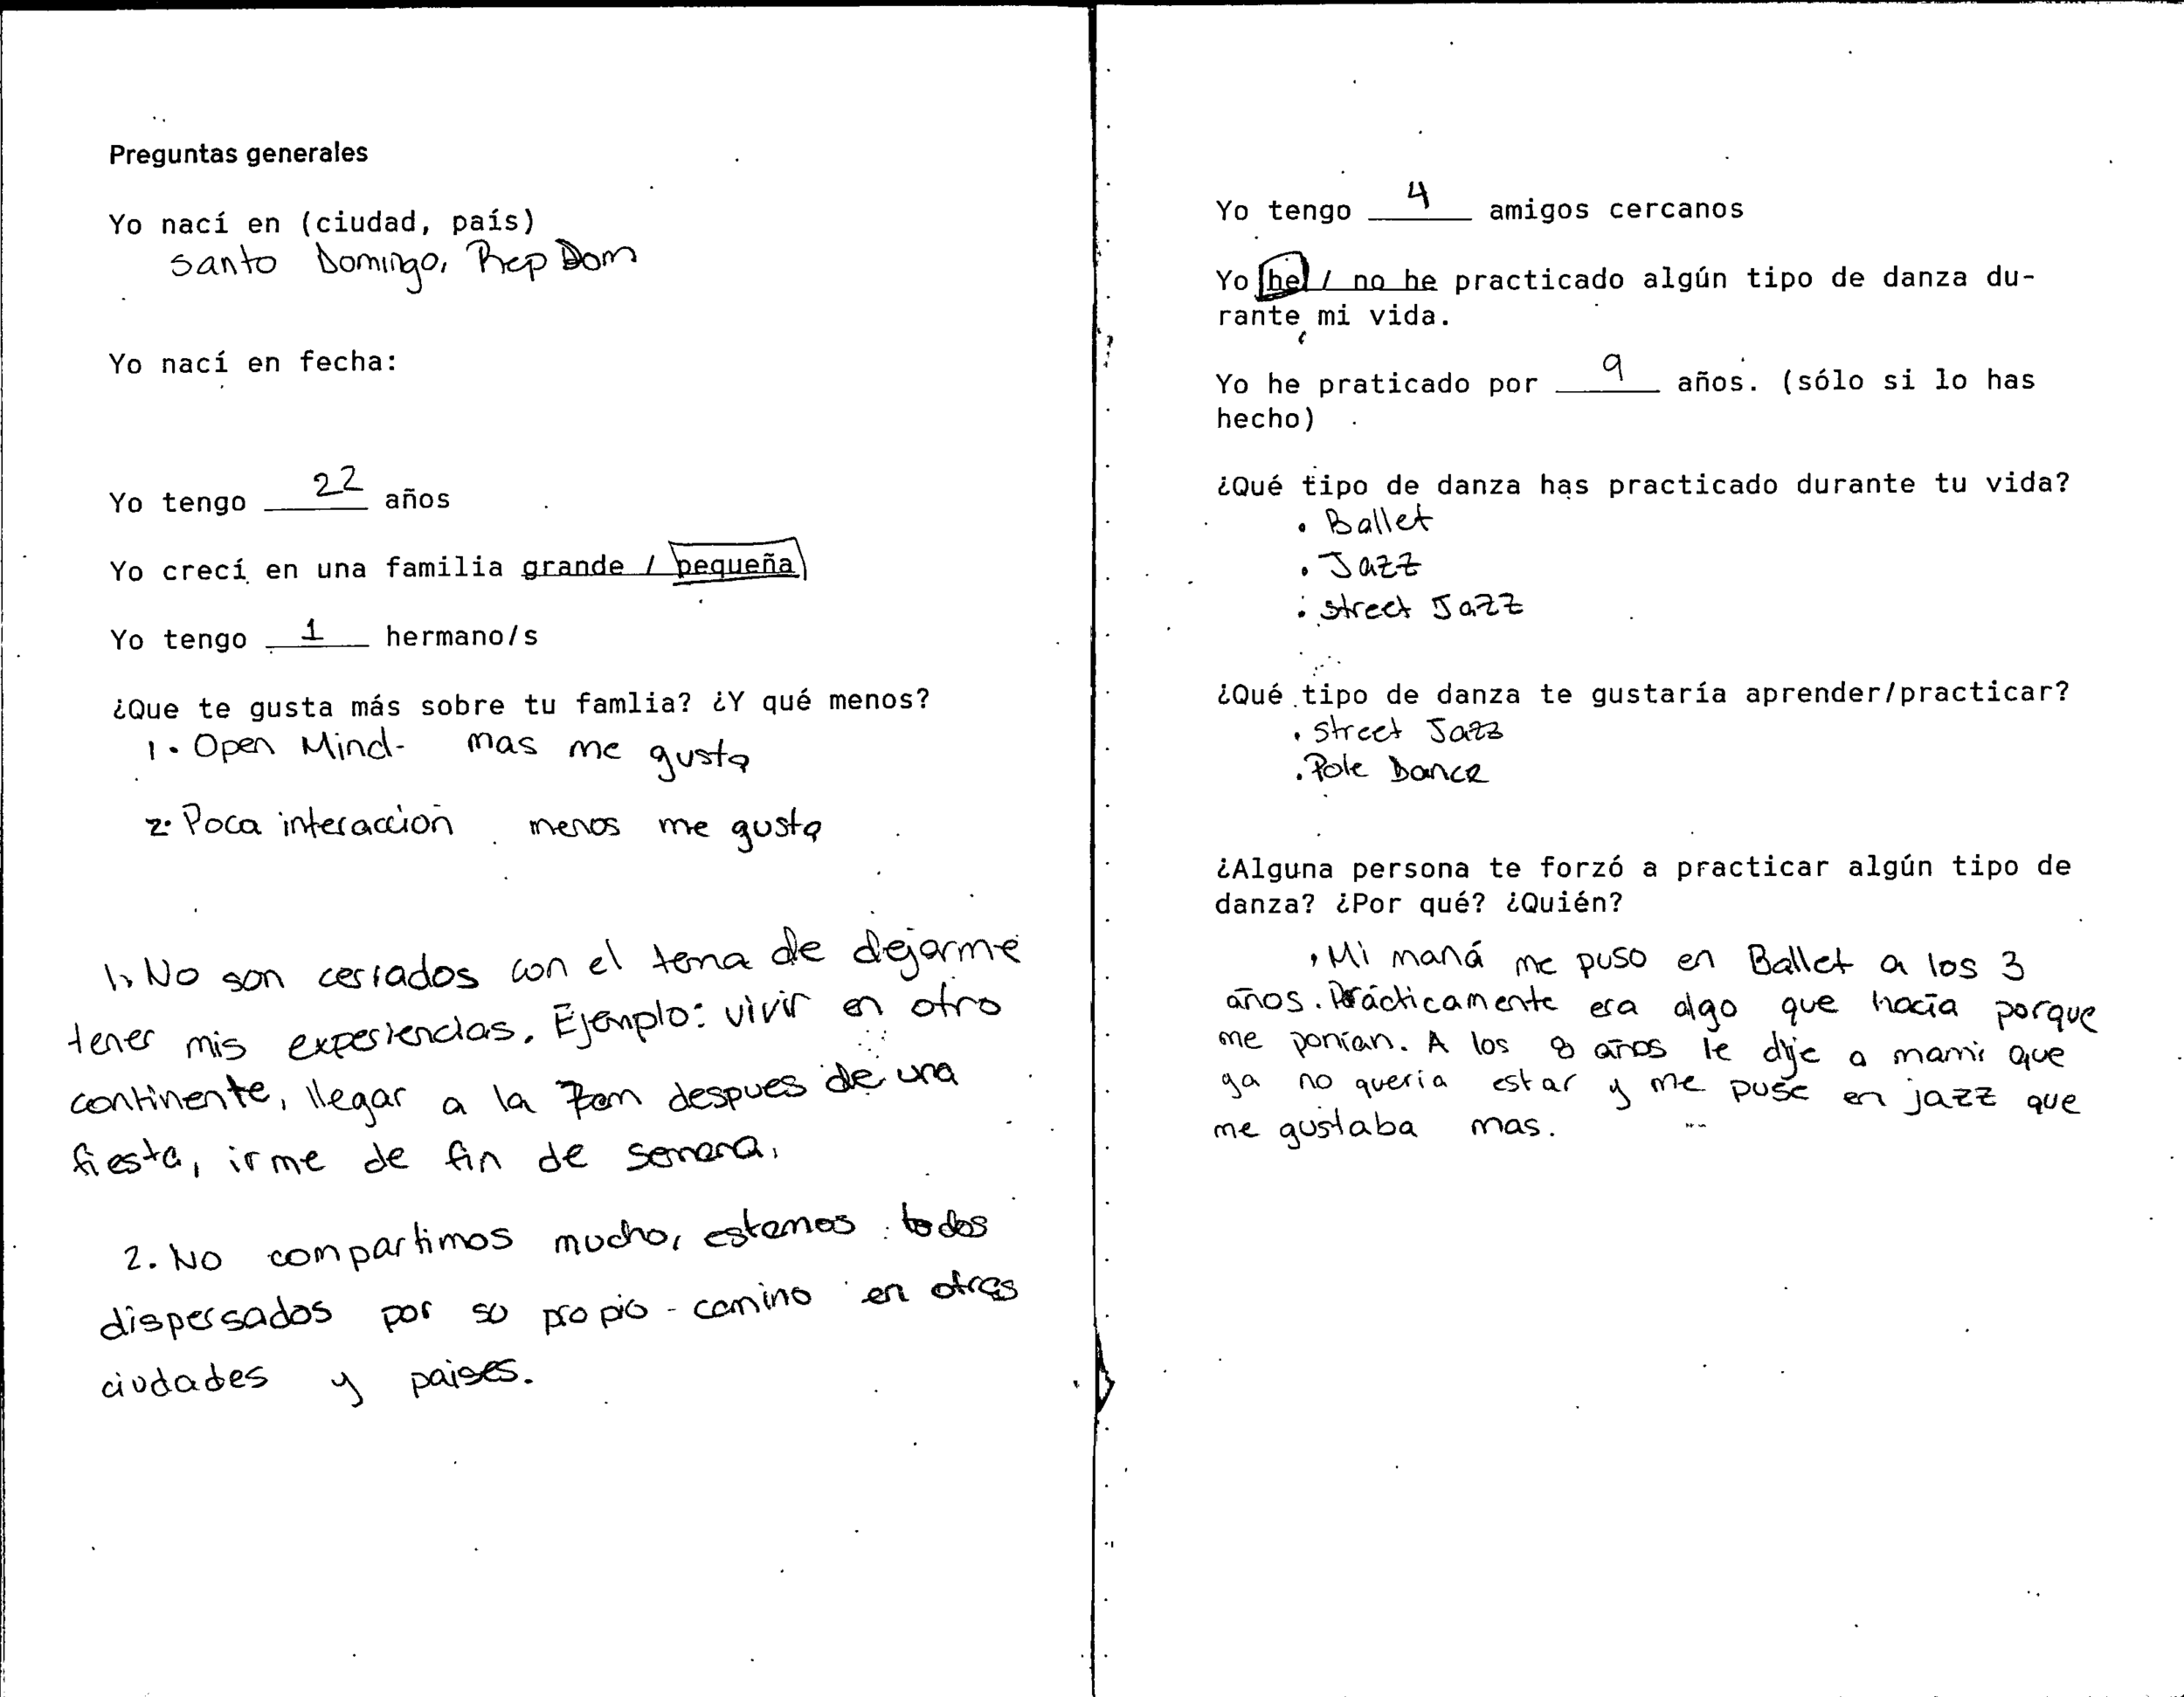 Preguntas generales
Yo nací en (ciudad, país)
Santo Domingo, Rep Dom
Yo nací en fecha:
Yo tengo 22 años
Yo crecí en una familia grande / pequeña
Yo tengo 1 hermano/s
¿Que te gusta más sobre tu famlia? ¿Y qué menos?
1. Open Mind- mas me gusta
2. Poca interaccion menos me gusta
1. No son cerrados con el tema de dejarme
tener mis experiencias. Ejemplo: vivir en otro
continente, llegar a la 7am despues de una
fiesta, irme de fin de semana.
2. No compartimos mucho, estamos todos
dispersados por su propio camino en otras
ciudades y paises.
Yo tengo 4 amigos cercanos
Yo he / no he practicado algún tipo de danza du-
rante mi vida.
Yo he praticado por 9 años. (sólo si lo has
hecho)
¿Qué tipo de danza has practicado durante tu vida?
• Ballet
• Jazz
• street Jazz
¿Qué tipo de danza te gustaría aprender/practicar?
• street Jazz
• Pole Dance
¿Alguna persona te forzó a practicar algún tipo de
danza? ¿Por qué? ¿Quién?
• Mi mamá me puso en Ballet a los 3
años. Prácticamente era algo que hacía porque
me ponían. A los 8 años le dije a mami que
ya no quería estar y me puse en jazz que
me gustaba mas.